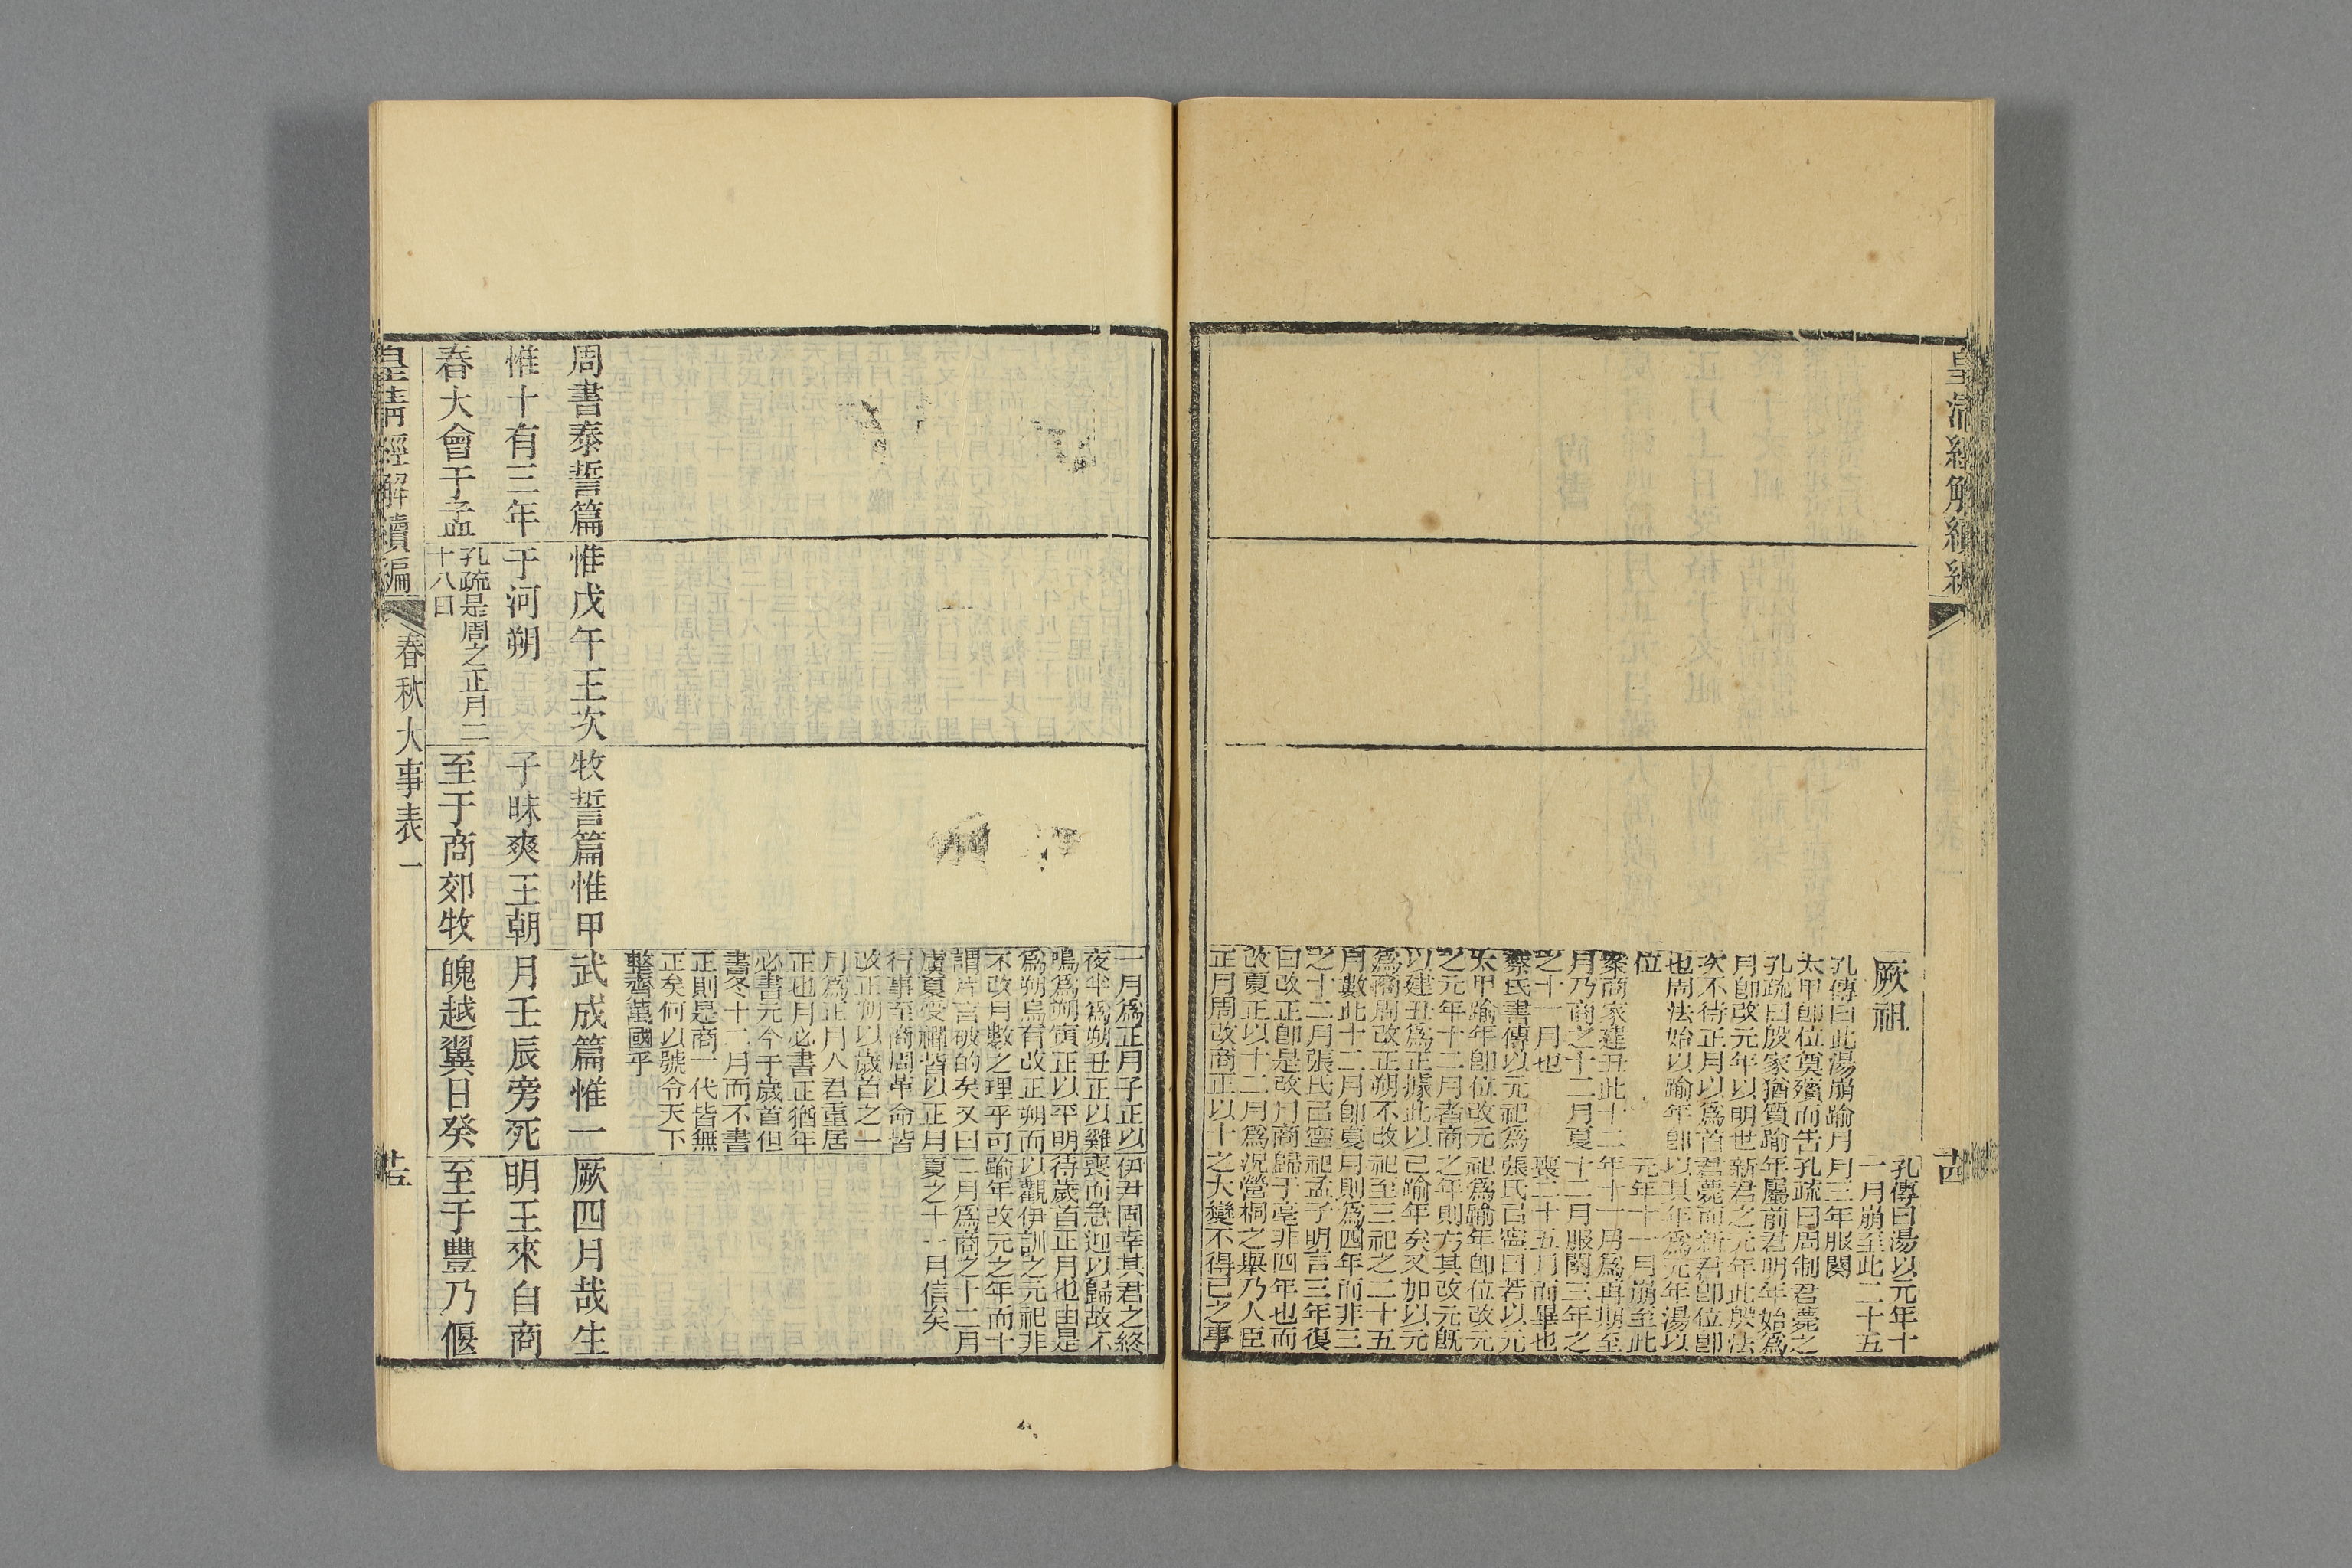 皇清經解續編
十四
厥祖
孔傳曰此湯崩踰月
太甲卽位奠殯而告
孔疏曰殷家猶質踰
月卽改元年以明世
次不待正月以爲首
也周法始以踰年卽
位
案商家建丑此十二
月乃商之十二月夏
之十一月也
蔡氏書傳以元祀爲
太甲踰年卽位改元
之元年十二月者商
以建丑爲正據此以
爲商周改正朔不改
月數此十二月卽夏
之十二月張氏己寧
曰改正卽是改月商
改夏正以十二月爲
正月周改商正以十
孔傳曰湯以元年十
一月崩至此二十五
月三年服闋
孔疏曰周制君薨之
年屬前君明年始爲
新君之元年此殷法
君薨而新君卽位卽
以其年爲元年湯以
元年十一月崩至此
年十一月爲再期至
十二月服闋三年之
喪二十五月而畢也
張氏己寧曰若以元
祀爲踰年卽位改元
之年則方其改元旣
已踰年矣又加以元
祀至三祀之二十五
月則爲四年而非三
祀孟子明言三年復
歸于亳非四年也而
況營桐之舉乃人臣
之大變不得已之事
一月爲正月子正以
夜半爲朔丑正以雞
鳴爲朔寅正以平明
爲朔烏有改正朔而
不改月數之理乎可
謂片言破的矣又曰
虞夏受禪皆以正月
行事至商周革命皆
改正朔以歲首之一
月爲正月人君重居
正也月必書正猶年
必書元今于歲首但
書冬十二月而不書
正則是商一代皆無
正矣何以號令天下
整齊萬國乎
伊尹固幸其君之終
喪而急迎以歸故不
待歲首正月也由是
以觀伊訓之元祀非
踰年改元之年而十
二月爲商之十二月
夏之十一月信矣
周書泰誓篇
惟十有三年
春大會于孟
惟戊午王次
于河朔
孔疏是周之正月二
十八日
牧誓篇惟甲
子昧爽王朝
至于商郊牧
武成篇惟一
月壬辰旁死
魄越翼日癸
厥四月哉生
明王來自商
至于豐乃偃
皇清經解續編
春秋大事表一